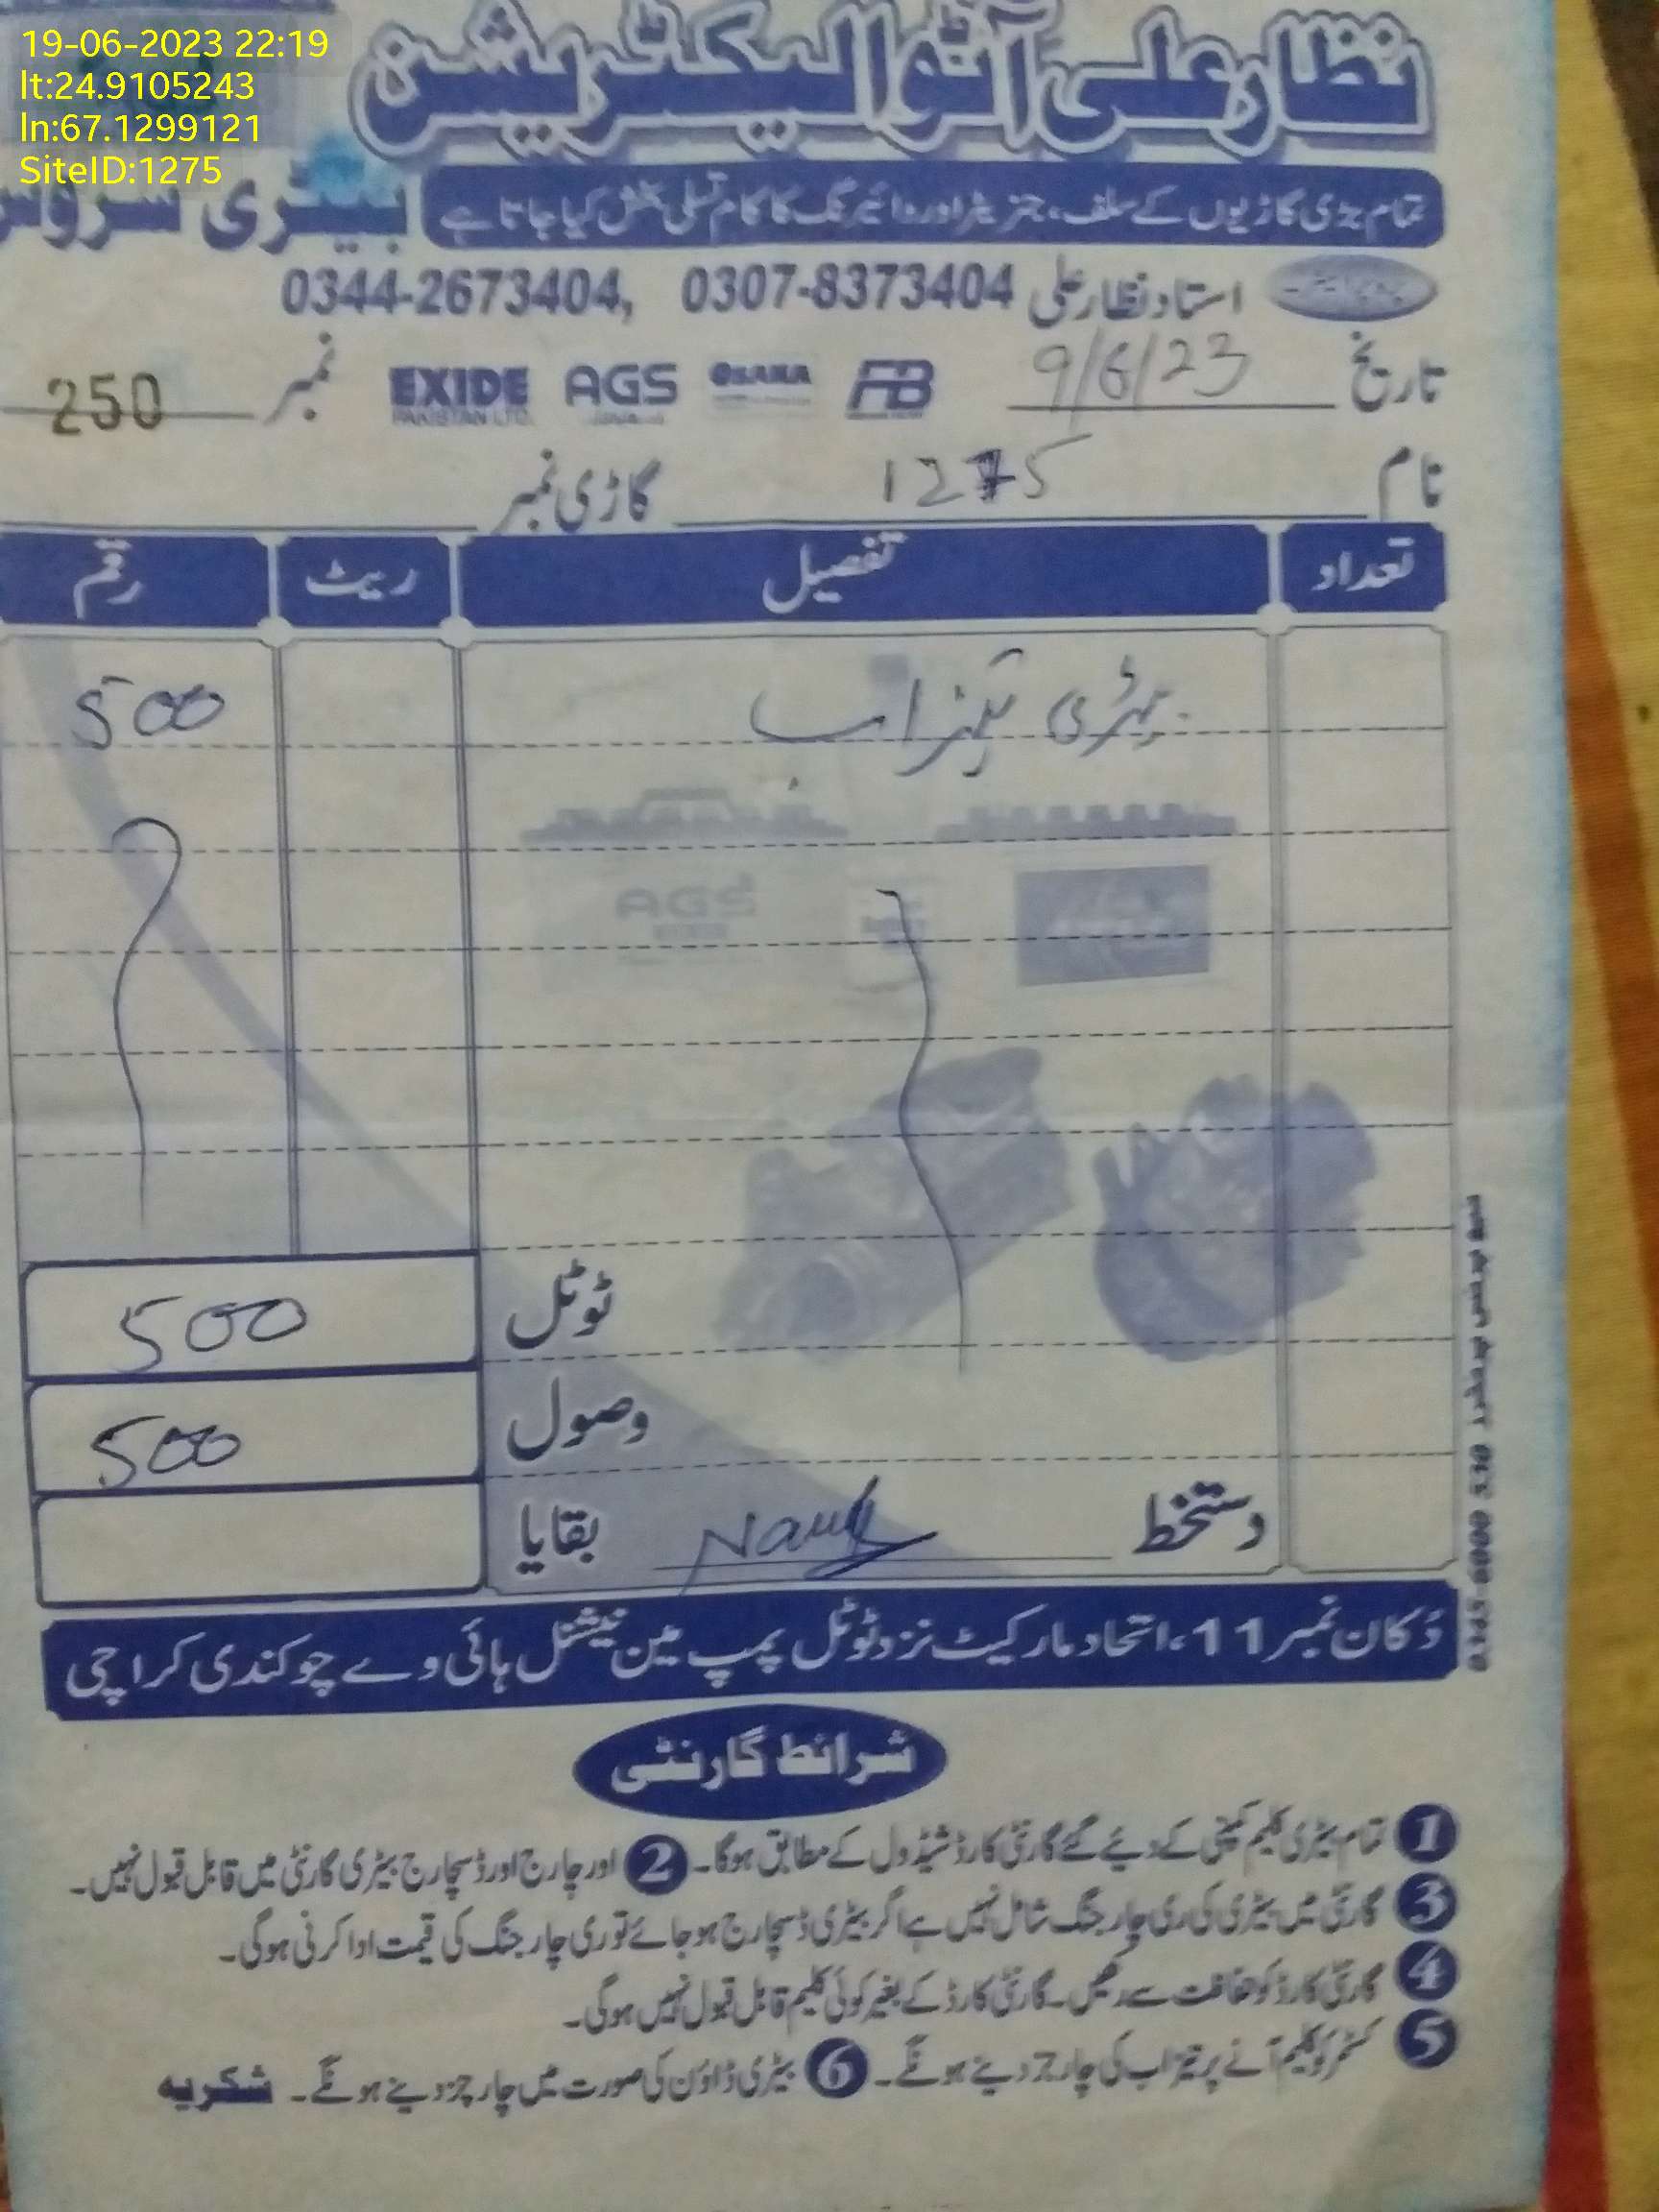 19-06-2023 22:19
lt:24.9105243
ln:67.1299121
SiteID:1275
نظار علی آٹو الیکٹریشن
تمام بڑی گاڑیوں کے سلف، جنریٹر اور وائیرنگ کا کام تسلی بخش کیا جاتا ہے
بیٹری سروس
استاد نظار علی 0307-8373404 ,0344-2673404
تاریخ 9/6/23 FB OSAKA AGS EXIDE PAKISTAN LTD. نمبر 250
نام 1275 گاڑی نمبر
تعداد تفصیل ریٹ رقم
بیٹری تیزاب 500
AGS
ٹوٹل 500
وصول 500
دستخط بقایا
دُکان نمبر 11، اتحاد مارکیٹ نزد ٹوٹل پمپ مین نیشنل ہائی وے چوکنڈی کراچی
شرائط گارنٹی
1 تمام بیٹری کلیم کمپنی کے دیئے گئے گارنٹی کارڈ شیڈول کے مطابق ہوگا۔ 2 اور چارج اور ڈسچارج بیٹری گارنٹی میں قابل قبول نہیں۔
3 گارنٹی میں بیٹری کی ری چارجنگ شامل نہیں ہے اگر بیٹری ڈسچارج ہو جائے تو ری چارجنگ کی قیمت ادا کرنی ہوگی۔
4 گارنٹی کارڈ کو حفاظت سے رکھیں۔ گارنٹی کارڈ کے بغیر کوئی کلیم قابل قبول نہیں ہوگی۔
5 کسٹمر کو کلیم آنے پر تیزاب کی چارجز دینے ہونگے۔ 6 بیٹری ڈاؤن کی صورت میں چارجز دینے ہونگے۔ شکریہ